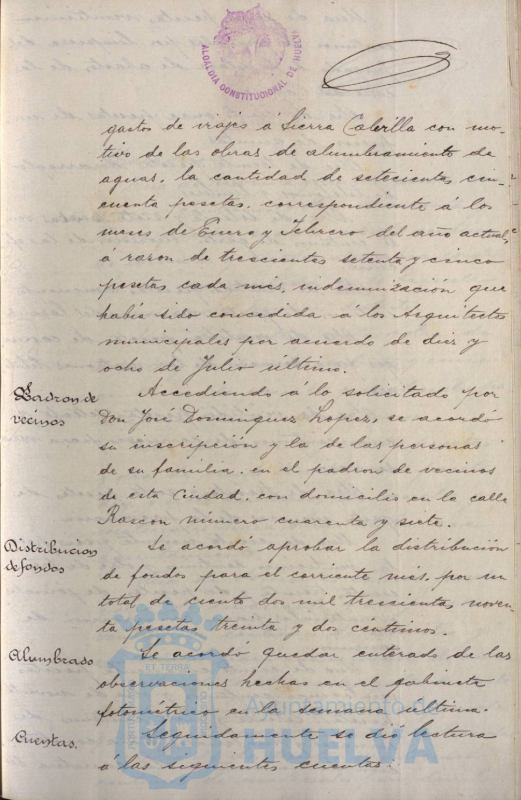 ALCALDÍA CONSTITUCIONAL DE HUELVA
gastos de viajes á Sierra Cabrilla con mo-
tivo de las obras de alumbramiento de
aguas, la cantidad de setecientas cin-
cuenta pesetas, correspondiente á los
meses de Enero y Febrero del año actual,
á razon de trescientas setenta y cinco
pesetas cada mes, indemnización que
había sido concedida á los Arquitectos
municipales por acuerdo de diez y
ocho de Julio último.
Padron de
vecinos
Accediendo á lo solicitado por
Don José Dominguez Lopez, se acordó
su inscripción y la de las personas
de su familia, en el padron de vecinos
de esta Ciudad, con domicilio en la calle
Rascon número cuarenta y siete.
Distribucion
de fondos
Se acordó aprobar la distribución
de fondos para el corriente mes, por un
total de ciento dos mil trescientas noven-
ta pesetas treinta y dos céntimos.
Alumbrado
Se acordó quedar enterado de las
observaciones hechas en el gabinete
fotométrico en la semana última.
Cuentas.
Seguidamente se dió lectura
á las siguientes cuentas:
Ayuntamiento de
HUELVA